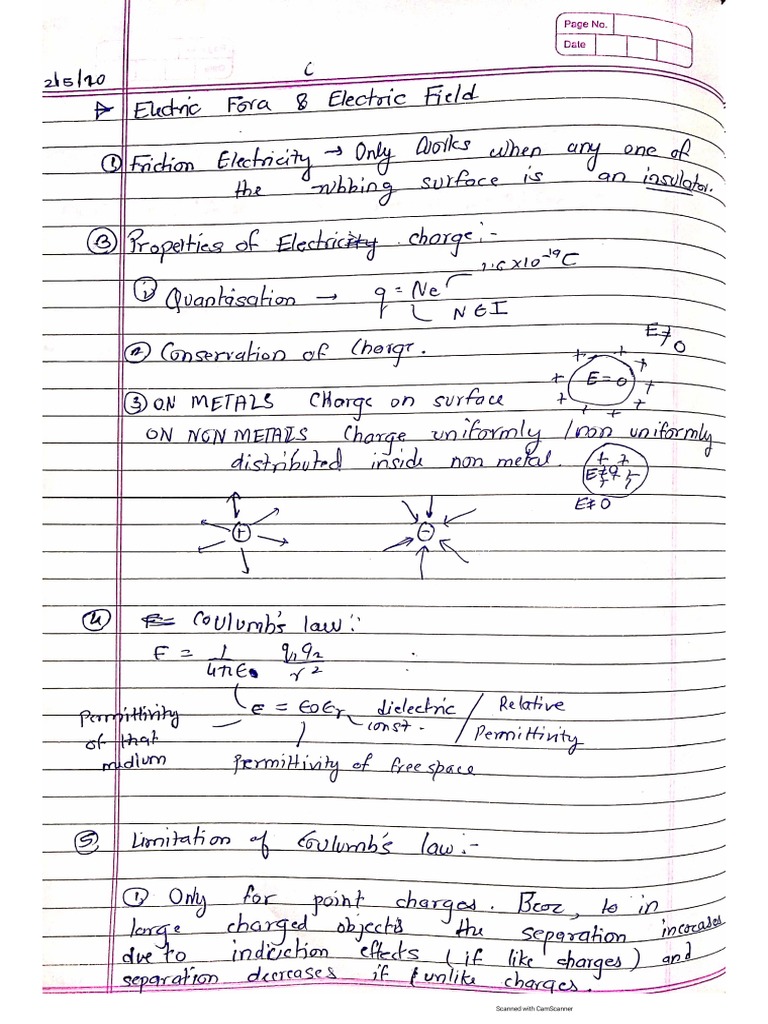 Page No.
Date
2/5/20
C
Electric Force & Electric Field
① Friction Electricity → Only Works when any one of
the rubbing surface is an insulator.
③ Properties of Electricity charge:-
① Quantisation → q = Ne 1.6 x 10⁻¹⁹C
N ∈ I
② Conservation of Charge.
E≠0
+ + + + + + + + +
E = 0
③ ON METALS Charge on surface
ON NON METALS Charge uniformly / non uniformly
distributed inside non metal.
+ +
E≠0
E≠0
+ -
④ Coulumb's law:
F = 1/4πε₀ q₁q₂/r²
ε = ε₀εr dielectric const. / Relative Permittivity
Permittivity
of that
midium
Permittivity of free space
⑤ Limitation of Coulumb's law:-
① Only for point charges. Bcoz, to in
large charged objects the separation incocases
due to indiction effects (if like charges) and
separation decreases if (unlike charges.
Scanned with CamScanner